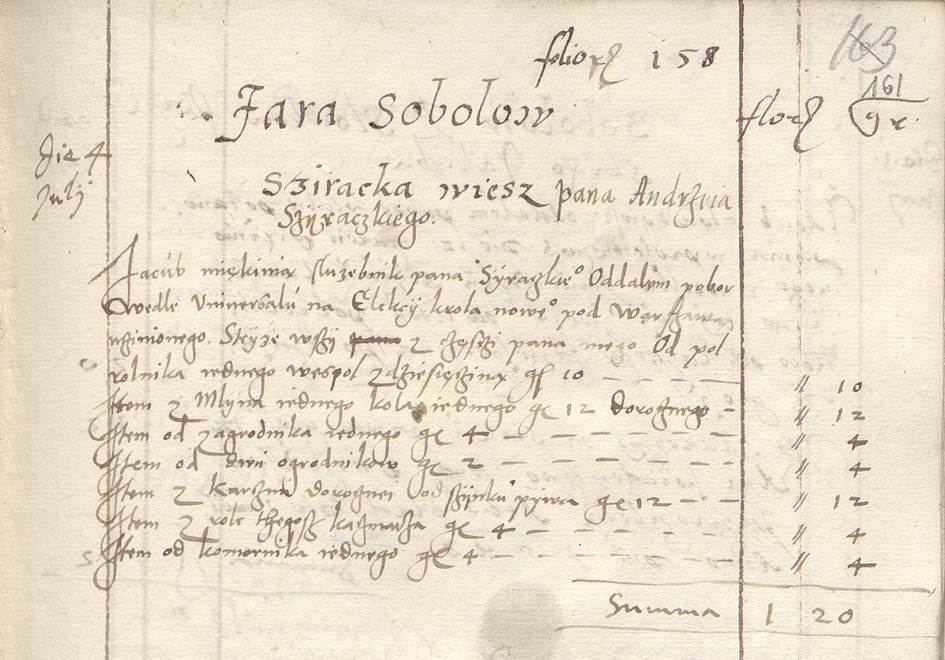 folior 158
163
161
Jara Sobolow
flor gr.
Die 4
July
Sziracka wiesz pana Andrzeia
Szyraczkiego.
Jacub miękinia służebnik pana Syraczkieo Oddałem pobor
Wedle Uniwersału na Elekcy krola noweo pod Warszawą
uczinionego. Steyże wszy pana z częsczi pana mego Od pol
rolnika iednego wespol zdziesięcziną gr 10 — — — — — " 10
Item z Młyna iednego koła iednego gr 12 dorocznego — " 12
Item od zagrodnika iednego gr 4 — — — — — — " 4
Item od dwu ogrodnikow gr 2 — — — — — — " 4
Item z karczmi dorocznei od szynku pywa gr 12 — — " 12
Item z role thegosz kaczmarza gr 4 — — — — — " 4
Item od komornika iednego gr 4 — — — — — — " 4
Summa 1 20